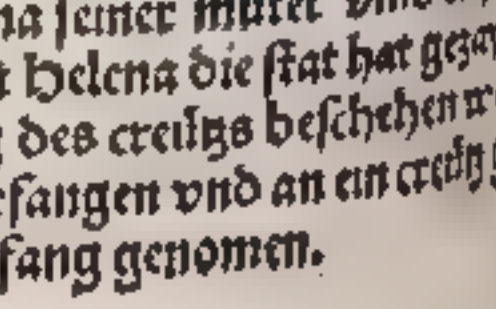 na ſeiner muter vnd
Helena die ſtat hat
des creűtzs beſchehen
efangen vnd an ein creűtz
fang genomen.